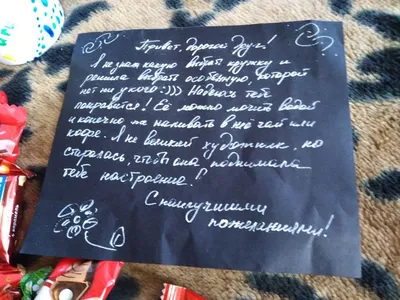 Привет, дорогой друг!
Я не знаю какую выбрать кружку и
решила выбрать особенную, которой
нет ни у кого :))) Надеюсь тебе
понравится! Её можно мочить водой
и конечно же наливать в неё чай или
кофе. Я не великий художник, но
старалась, чтобы она поднимала
тебе настроение!
С наилучшими
пожеланиями!